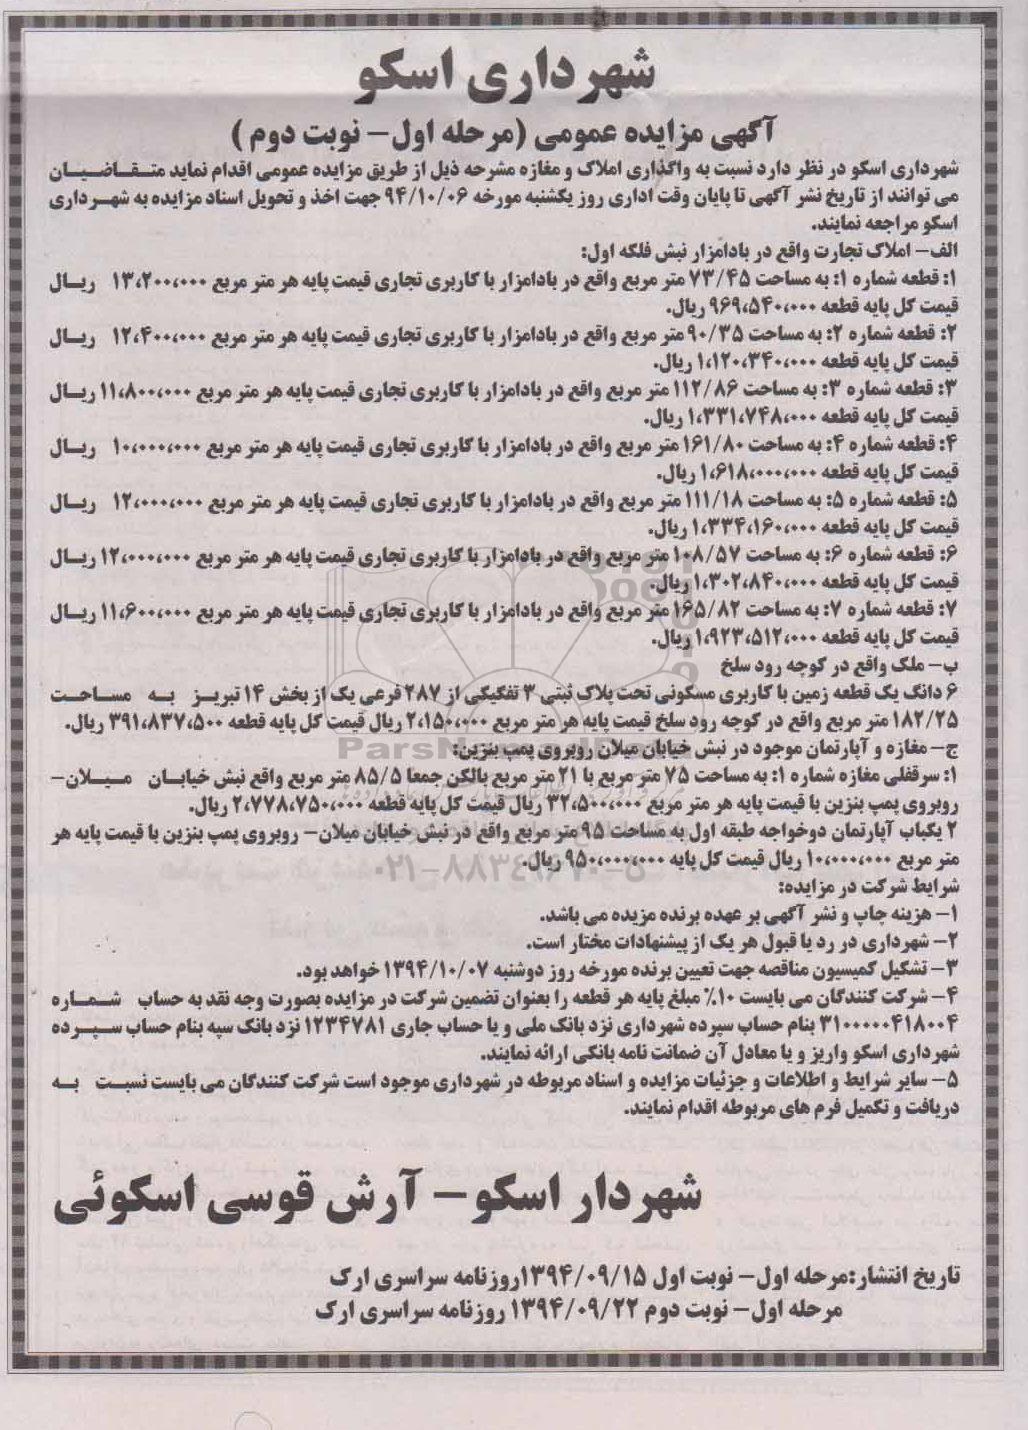 شهرداری اسکو
آگهی مزایده عمومی (مرحله اول- نوبت دوم )
شهرداری اسکو در نظر دارد نسبت به واگذاری املاک و مغازه مشرحه ذیل از طریق مزایده عمومی اقدام نماید متقاضیان
می توانند از تاریخ نشر آگهی تا پایان وقت اداری روز یکشنبه مورخه ۹۴/۱۰/۰۶ جهت اخذ و تحویل اسناد مزایده به شهرداری
اسکو مراجعه نمایند.
الف- املاک تجارت واقع در بادامزار نبش فلکه اول:
۱: قطعه شماره ۱: به مساحت ۷۳/۴۵ متر مربع واقع در بادامزار با کاربری تجاری قیمت پایه هر متر مربع ۱۳،۲۰۰،۰۰۰ ریال
قیمت کل پایه قطعه ۹۶۹،۵۴۰،۰۰۰ ریال.
۲: قطعه شماره ۲: به مساحت ۹۰/۳۵ متر مربع واقع در بادامزار با کاربری تجاری قیمت پایه هر متر مربع ۱۲،۴۰۰،۰۰۰ ریال
قیمت کل پایه قطعه ۱،۱۲۰،۳۴۰،۰۰۰ ریال.
۳: قطعه شماره ۳: به مساحت ۱۱۲/۸۶ متر مربع واقع در بادامزار با کاربری تجاری قیمت پایه هر متر مربع ۱۱،۸۰۰،۰۰۰ ریال
قیمت کل پایه قطعه ۱،۳۳۱،۷۴۸،۰۰۰ ریال.
۴: قطعه شماره ۴: به مساحت ۱۶۱/۸۰ متر مربع واقع در بادامزار با کاربری تجاری قیمت پایه هر متر مربع ۱۰،۰۰۰،۰۰۰ ریال
قیمت کل پایه قطعه ۱،۶۱۸،۰۰۰،۰۰۰ ریال.
۵: قطعه شماره ۵: به مساحت ۱۱۱/۱۸ متر مربع واقع در بادامزار با کاربری تجاری قیمت پایه هر متر مربع ۱۲،۰۰۰،۰۰۰ ریال
قیمت کل پایه قطعه ۱،۳۳۴،۱۶۰،۰۰۰ ریال.
۶: قطعه شماره ۶: به مساحت ۱۰۸/۵۷ متر مربع واقع در بادامزار با کاربری تجاری قیمت پایه هر متر مربع ۱۲،۰۰۰،۰۰۰ ریال
قیمت کل پایه قطعه ۱،۳۰۲،۸۴۰،۰۰۰ ریال.
۷: قطعه شماره ۷: به مساحت ۱۶۵/۸۲ متر مربع واقع در بادامزار با کاربری تجاری قیمت پایه هر متر مربع ۱۱،۶۰۰،۰۰۰ ریال
قیمت کل پایه قطعه ۱،۹۲۳،۵۱۲،۰۰۰ ریال.
ب- ملک واقع در کوچه رود سلخ
۶ دانگ یک قطعه زمین با کاربری مسکونی تحت پلاک ثبتی ۳ تفکیکی از ۲۸۷ فرعی یک از بخش ۱۴ تبریز به مساحت
۱۸۲/۲۵ متر مربع واقع در کوچه رود سلخ قیمت پایه هر متر مربع ۲،۱۵۰،۰۰۰ ریال قیمت کل پایه قطعه ۳۹۱،۸۳۷،۵۰۰ ریال.
ج- مغازه و آپارتمان موجود در نبش خیابان میلان روبروی پمپ بنزین:
۱: سرقفلی مغازه شماره ۱: به مساحت ۷۵ متر مربع با ۲۱ متر مربع بالکن جمعا ۸۵/۵ متر مربع واقع نبش خیابان میلان-
روبروی پمپ بنزین با قیمت پایه هر متر مربع ۳۲،۵۰۰،۰۰۰ ریال قیمت کل پایه قطعه ۲،۷۷۸،۷۵۰،۰۰۰ ریال.
۲ یکباب آپارتمان دوخوابه طبقه اول به مساحت ۹۵ متر مربع واقع در نبش خیابان میلان- روبروی پمپ بنزین با قیمت پایه هر
متر مربع ۱۰،۰۰۰،۰۰۰ ریال قیمت کل پایه ۹۵۰،۰۰۰،۰۰۰ ریال.
ParsNamadData
۰۲۱-۸۸۳۴۹۶۷۰-۵
شرایط شرکت در مزایده:
۱- هزینه چاپ و نشر آگهی بر عهده برنده مزیده می باشد.
۲- شهرداری در رد یا قبول هر یک از پیشنهادات مختار است.
۳- تشکیل کمیسیون مناقصه جهت تعیین برنده مورخه روز دوشنبه ۱۳۹۴/۱۰/۰۷ خواهد بود.
۴- شرکت کنندگان می بایست ۱۰٪ مبلغ پایه هر قطعه را بعنوان تضمین شرکت در مزایده بصورت وجه نقد به حساب شماره
۳۱۰۰۰۰۰۴۱۸۰۰۴ بنام حساب سپرده شهرداری نزد بانک ملی و یا حساب جاری ۱۲۳۴۷۸۱ نزد بانک سپه بنام حساب سپرده
شهرداری اسکو واریز و یا معادل آن ضمانت نامه بانکی ارائه نمایند.
۵- سایر شرایط و اطلاعات و جزئیات مزایده و اسناد مربوطه در شهرداری موجود است شرکت کنندگان می بایست نسبت به
دریافت و تکمیل فرم های مربوطه اقدام نمایند.
شهردار اسکو- آرش قوسی اسکوئی
تاریخ انتشار:مرحله اول- نوبت اول ۱۳۹۴/۰۹/۱۵روزنامه سراسری ارک
مرحله اول- نوبت دوم ۱۳۹۴/۰۹/۲۲ روزنامه سراسری ارک